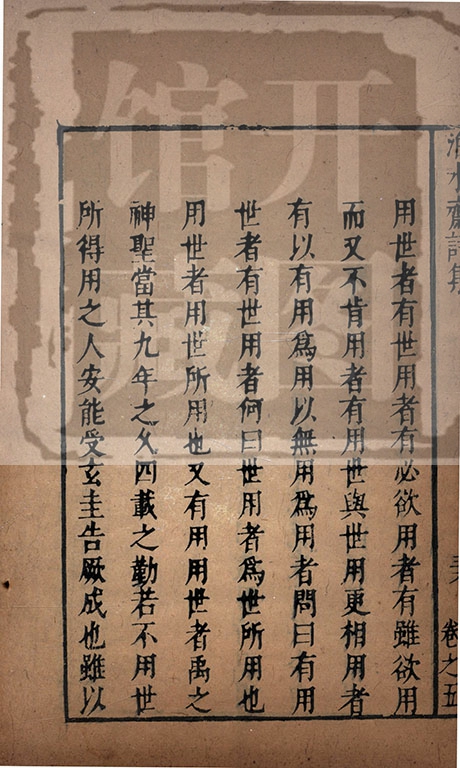 用世者有世用者有必欲用者有雖欲用
而又不肯用者有用世與世用更相用者
有以有用爲用以無用爲用者問曰有用
世者有世用者何曰世用者爲世所用也
用世者用世所用也又有用用世者禹之
神聖當其九年之久四載之勤若不用世
所得用之人安能受玄圭告厥成也雖以
卷之五
开图
馆藏